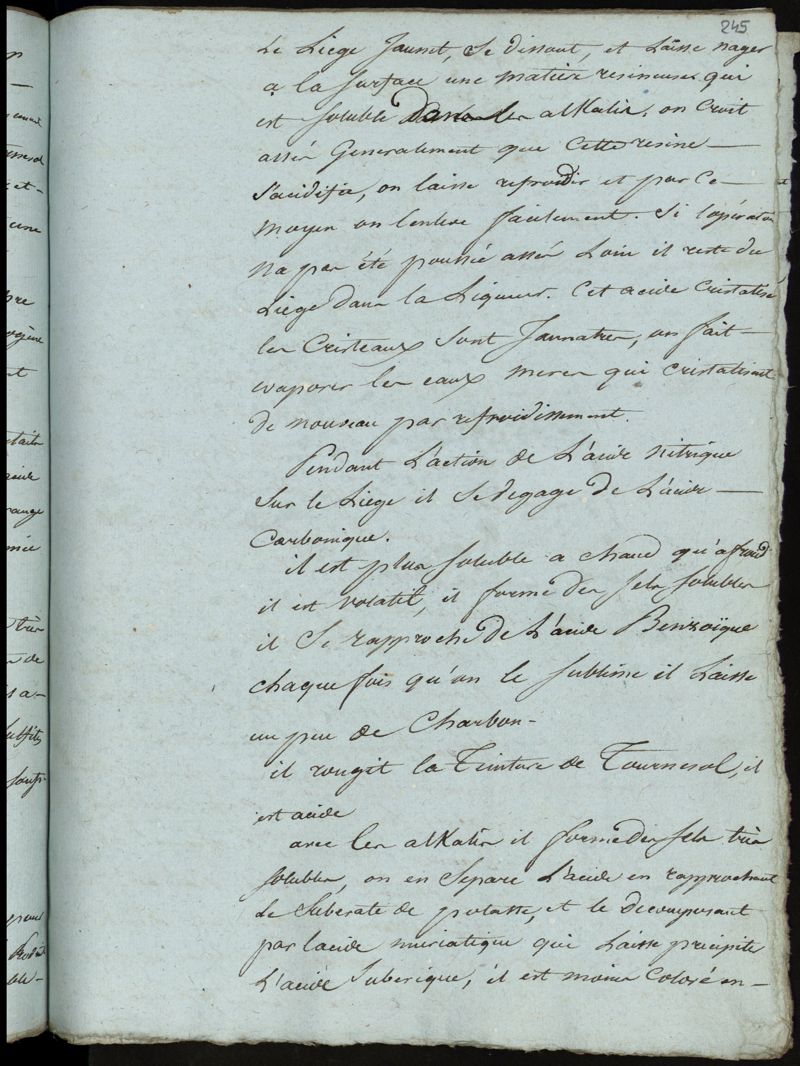 245
Le Liege Jaunit, Se dissout, et Laisse nager
a la surface une matiere resineuse qui
est soluble Dans les alkalis, on croit
assés Generalement que Cette resine —
s'acidifie, on laisse refroidir et par Ce —
moyen on l'enleve facilement. Si l'opération
na pas été poussée assés Loin il reste du
Liège dans la Liqueur. Cet acide Cristalise
les Cristeaux sont Jaunatres, on fait —
evaporer les eaux meres qui cristalisent
de nouveau par refroidissement.
Pendant L'action de L'acide Nitrique
Sur le Liege il Se degage de L'acide —
Carbonique.
il est plus soluble a chaud qu'a froid
il est volatil, il forme des sels solubles
il Se rapproche de L'acide Benzoïque
chaque fois qu'on le sublime il Laisse
un peu de Charbon —
il rougit la Teinture de Tournesol, il
est acide
avec les alkalis il forme des sels très
solubles, on en Separe L'acide en rapprochant
Le Suberate de potasse, et le decomposant
par lacide muriatique qui Laisse precipité
L'acide Suberique, il est moins Coloré en —